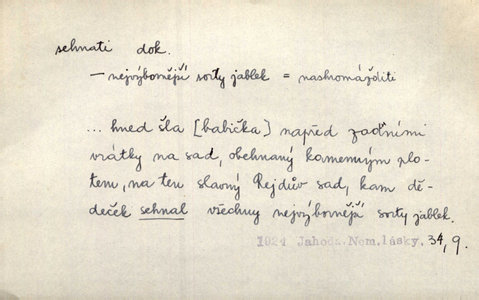 sehnati dok.
— nejvýbornější sorty jablek = nashromážditi
... hned šla [babička] napřed zadními
vrátky na sad, obehnaný kamenným plo-
tem, na ten slavný Rejdův sad, kam dě-
deček sehnal všechny nejvýbornější sorty jablek.
1924 Jahoda.Nem.lásky. 34, 9.